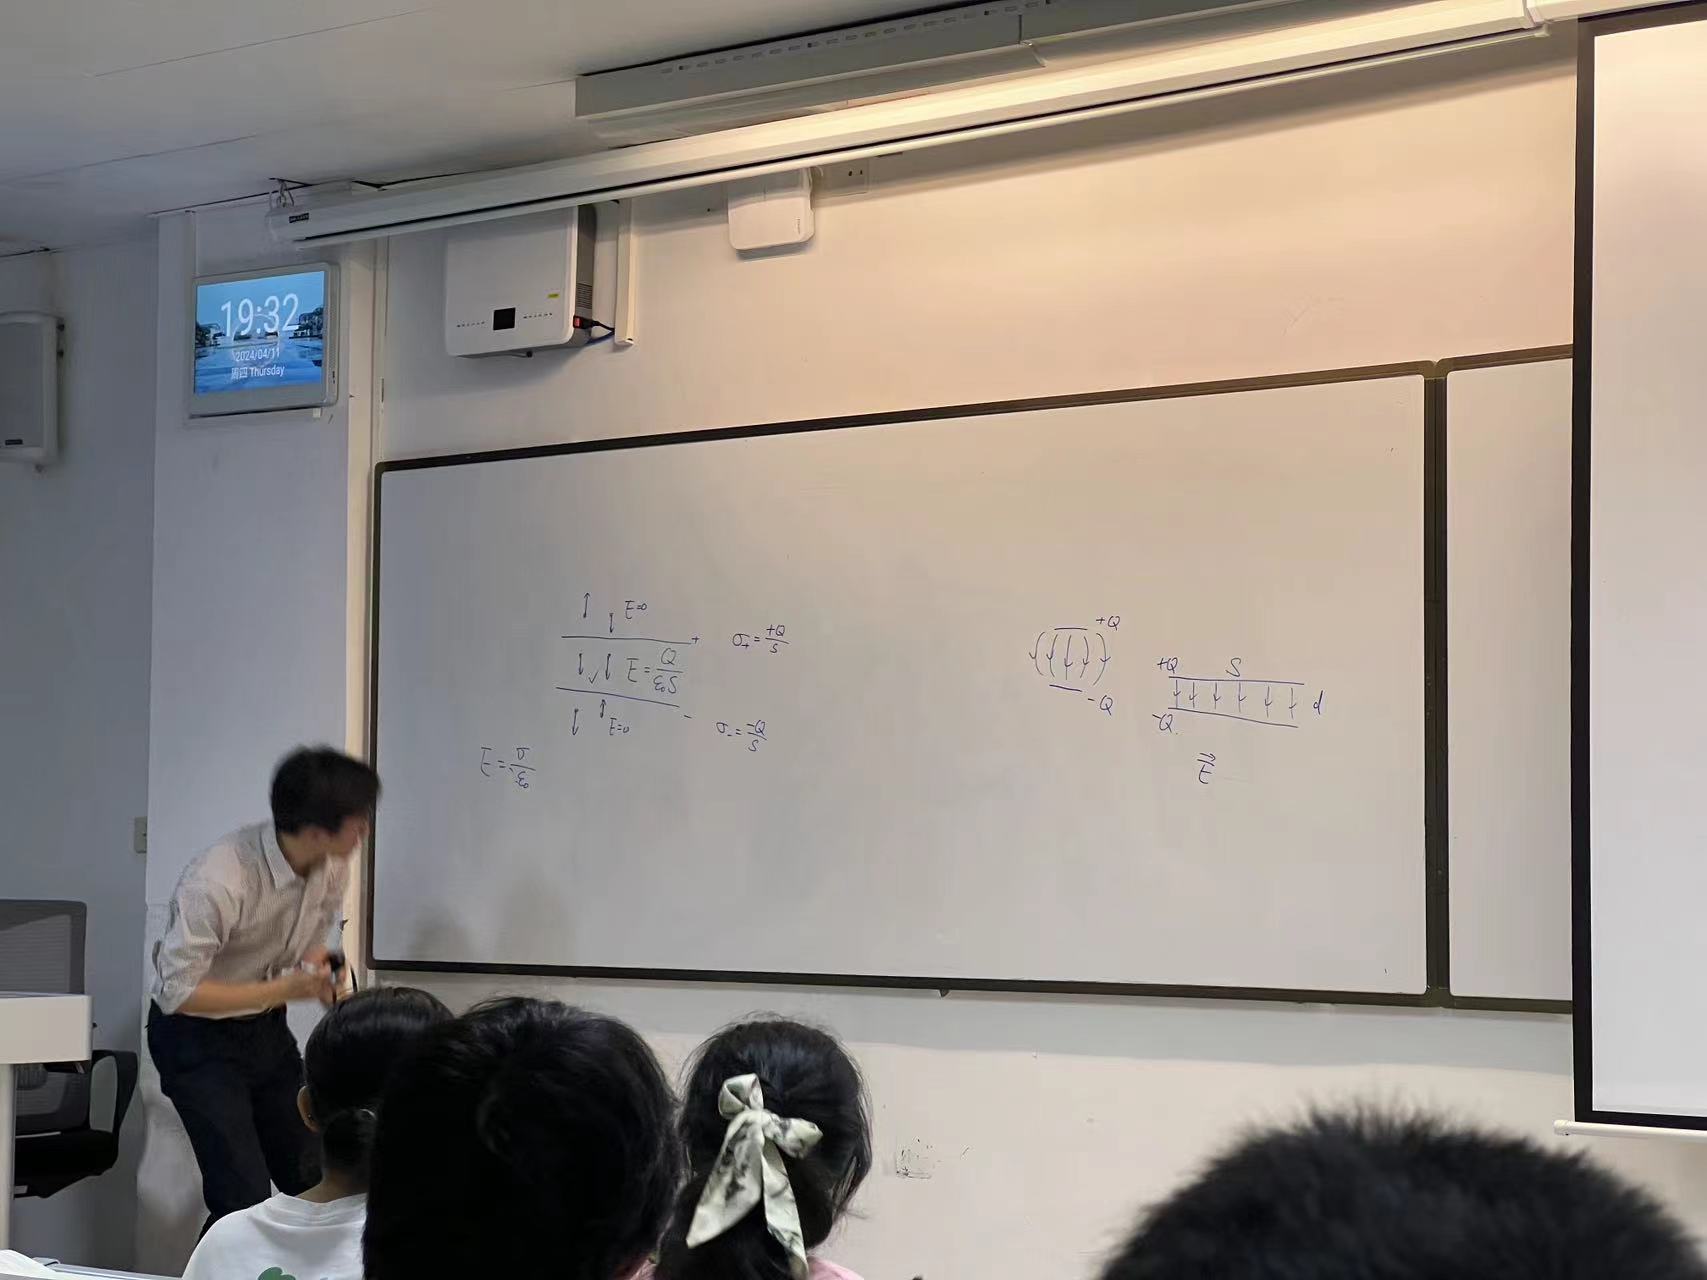 19:32
2024/04/11
周四 Thursday
E=0
+
σ₊=+Q/S
E=Q/ε₀S
-
E=0
σ₋=-Q/S
E=σ/ε₀
+Q
-Q
+Q
S
d
-Q
E⃗